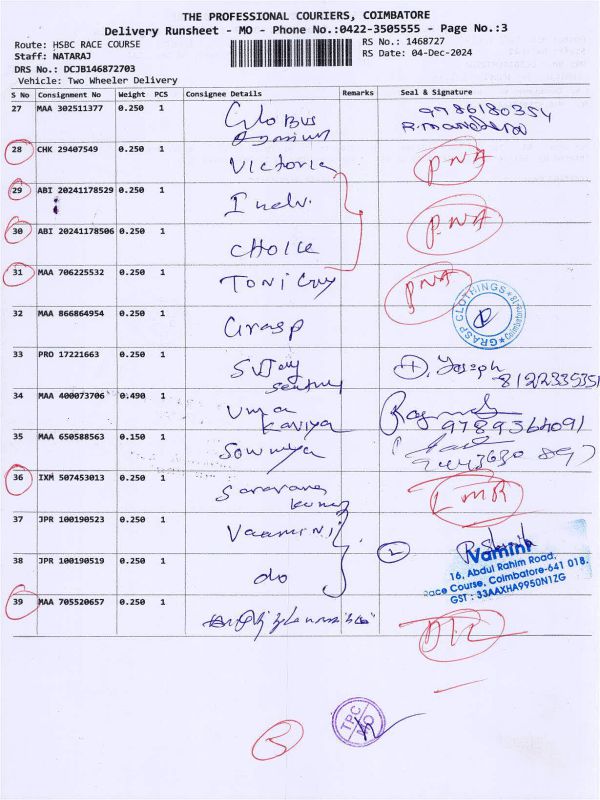 THE PROFESSIONAL COURIERS, COIMBATORE
Delivery Runsheet - MO - Phone No.:0422-3505555 - Page No.:3
Route: HSBC RACE COURSE
RS No.: 1468727
Staff: NATARAJ
RS Date: 04-Dec-2024
DRS No.: DCJB146872703
Vehicle: Two Wheeler Delivery
S No Consignment No Weight PCS Consignee Details Remarks Seal & Signature
27 MAA 302511377 0.250 1 Globus 9786180354
28 CHK 29407549 0.250 1 Victoria PNA
29 ABI 20241178529 0.250 1 PNA
30 ABI 20241178506 0.250 1 CHOICE
31 MAA 706225532 0.250 1 TONI Guy PNA
GRASP CLOTHINGS Coimbatore-18
32 MAA 866864954 0.250 1 Grasp
33 PRO 17221663 0.250 1 D. Joseph
8122335351
34 MAA 400073706 0.490 1 Uma
Kaviya 9789364091
35 MAA 650588563 0.150 1 Sowmiya
36 IXM 507453013 0.250 1 Saravana
Kumar
37 JPR 100190523 0.250 1 Vaamini 2
Vamini
16, Abdul Rahim Road,
Race Course, Coimbatore-641 018.
GST : 33AAXHA9950N1ZG
38 JPR 100190519 0.250 1 do
39 MAA 705520657 0.250 1
TPC
MO